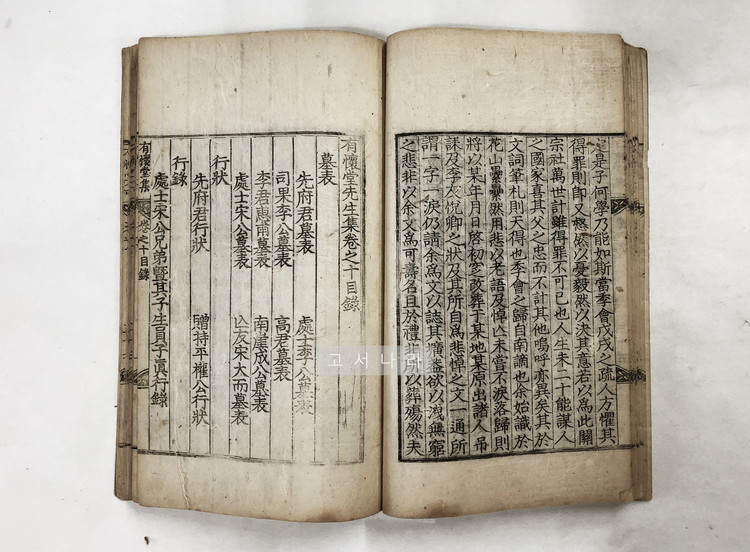 是子何學乃能如斯當季會戊戌之疏人方懼其
得罪則即又楙然以憂毅然以決其意若以為此關
宗社萬世計雖得罪不可已也人生未二十能謀人
之國家喜其父之忠而不計其他嗚呼亦異矣其於
文詞筆札則天得也李會之歸自南謫也余始識於
花山纍纍然用悲以老語及悼亾未嘗不淚落歸則
將以某年月日啓初窆改葬于某地某原出諸人吊
誄及李友悅卿之狀及其所自為悲悼之文一通所
謂一字一淚仍請余為文以誌其壙盖欲以洩無窮
之悲非以余文為可壽名且於禮非以葬殤然夫
有懷堂先生集卷之十目錄
墓表
先府君墓表
處士李公墓表
司果李公墓表
高君墓表
李君惠甫墓表
南崖成公墓表
處士宋公墓表
亾友宋大而墓表
行狀
先府君行狀
贈持平權公行狀
行錄
處士宋公兄弟暨其子生員子眞行錄
有懷堂集
卷之十目錄
고서나라